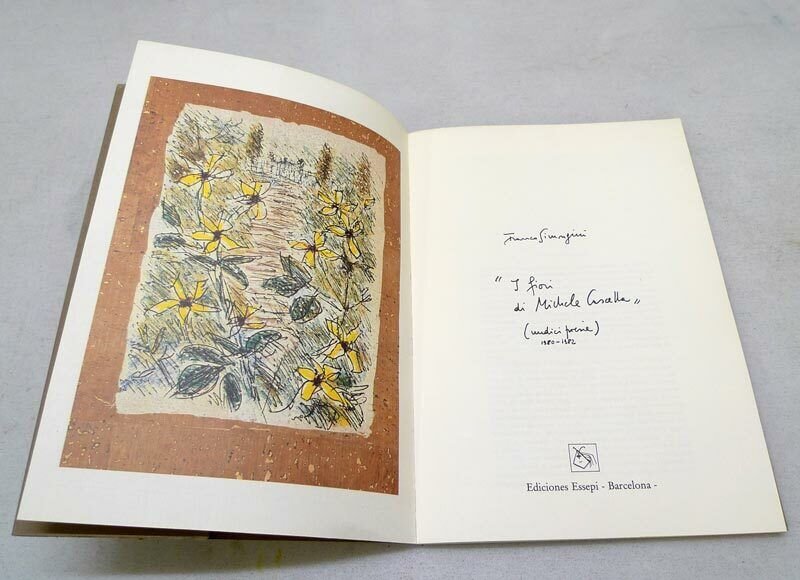 Franco Simongini
" I fiori
di Michele Cascella "
(undici poesie)
1980-1982
Ediciones Essepi - Barcelona -